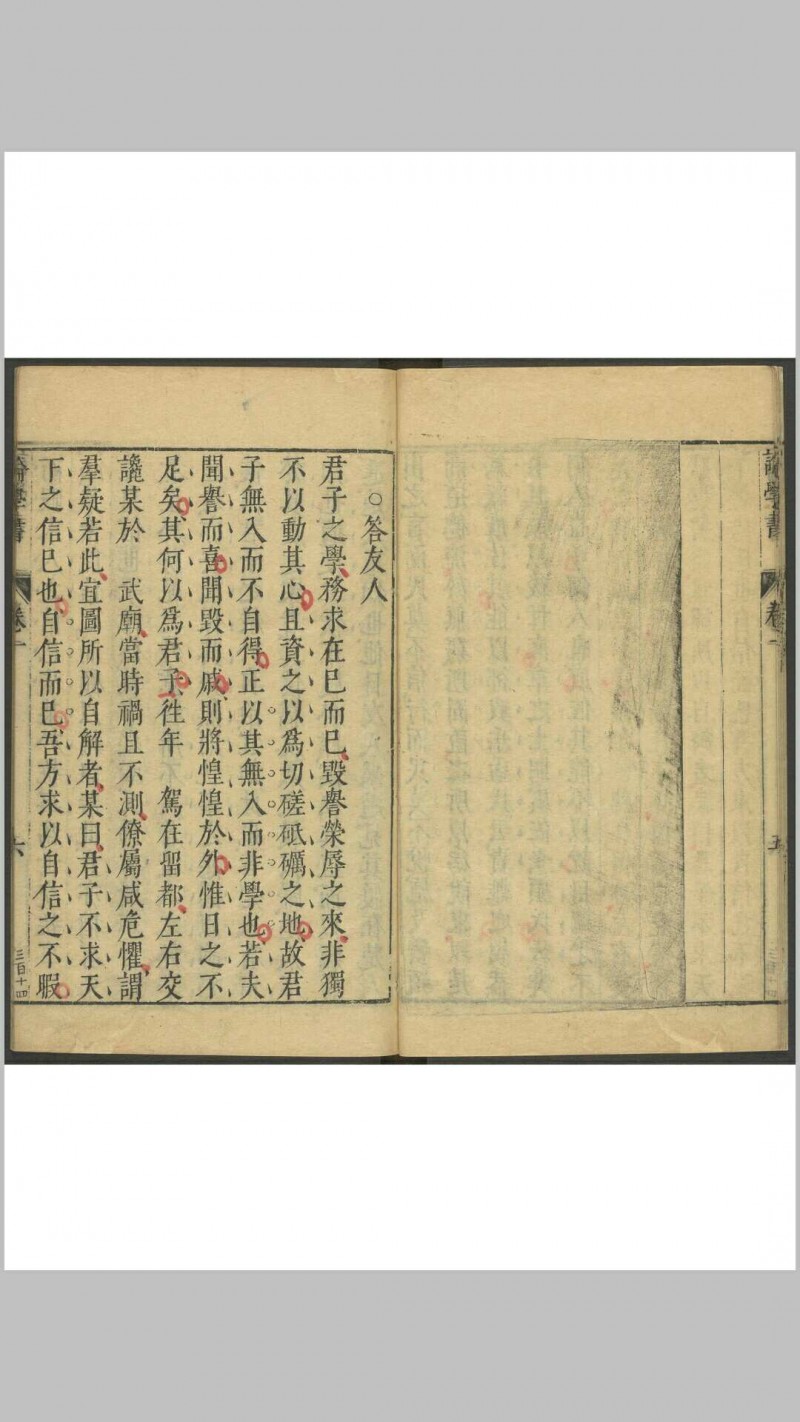 論學書
卷一
五
○答友人
君子之學務求在已而已毀譽榮辱之來非獨
不以動其心且資之以爲切磋砥礪之地故君
子無入而不自得正以其無入而非學也若夫
聞譽而喜聞毀而戚則將惶惶於外惟日之不
足矣其何以爲君子徃年　駕在留都左右交
讒某於　武廟當時禍且不測僚屬咸危懼謂
羣疑若此宜圖所以自解者某曰君子不求天
下之信已也自信而已吾方求以自信之不暇
論學書
卷一
六
三百十四